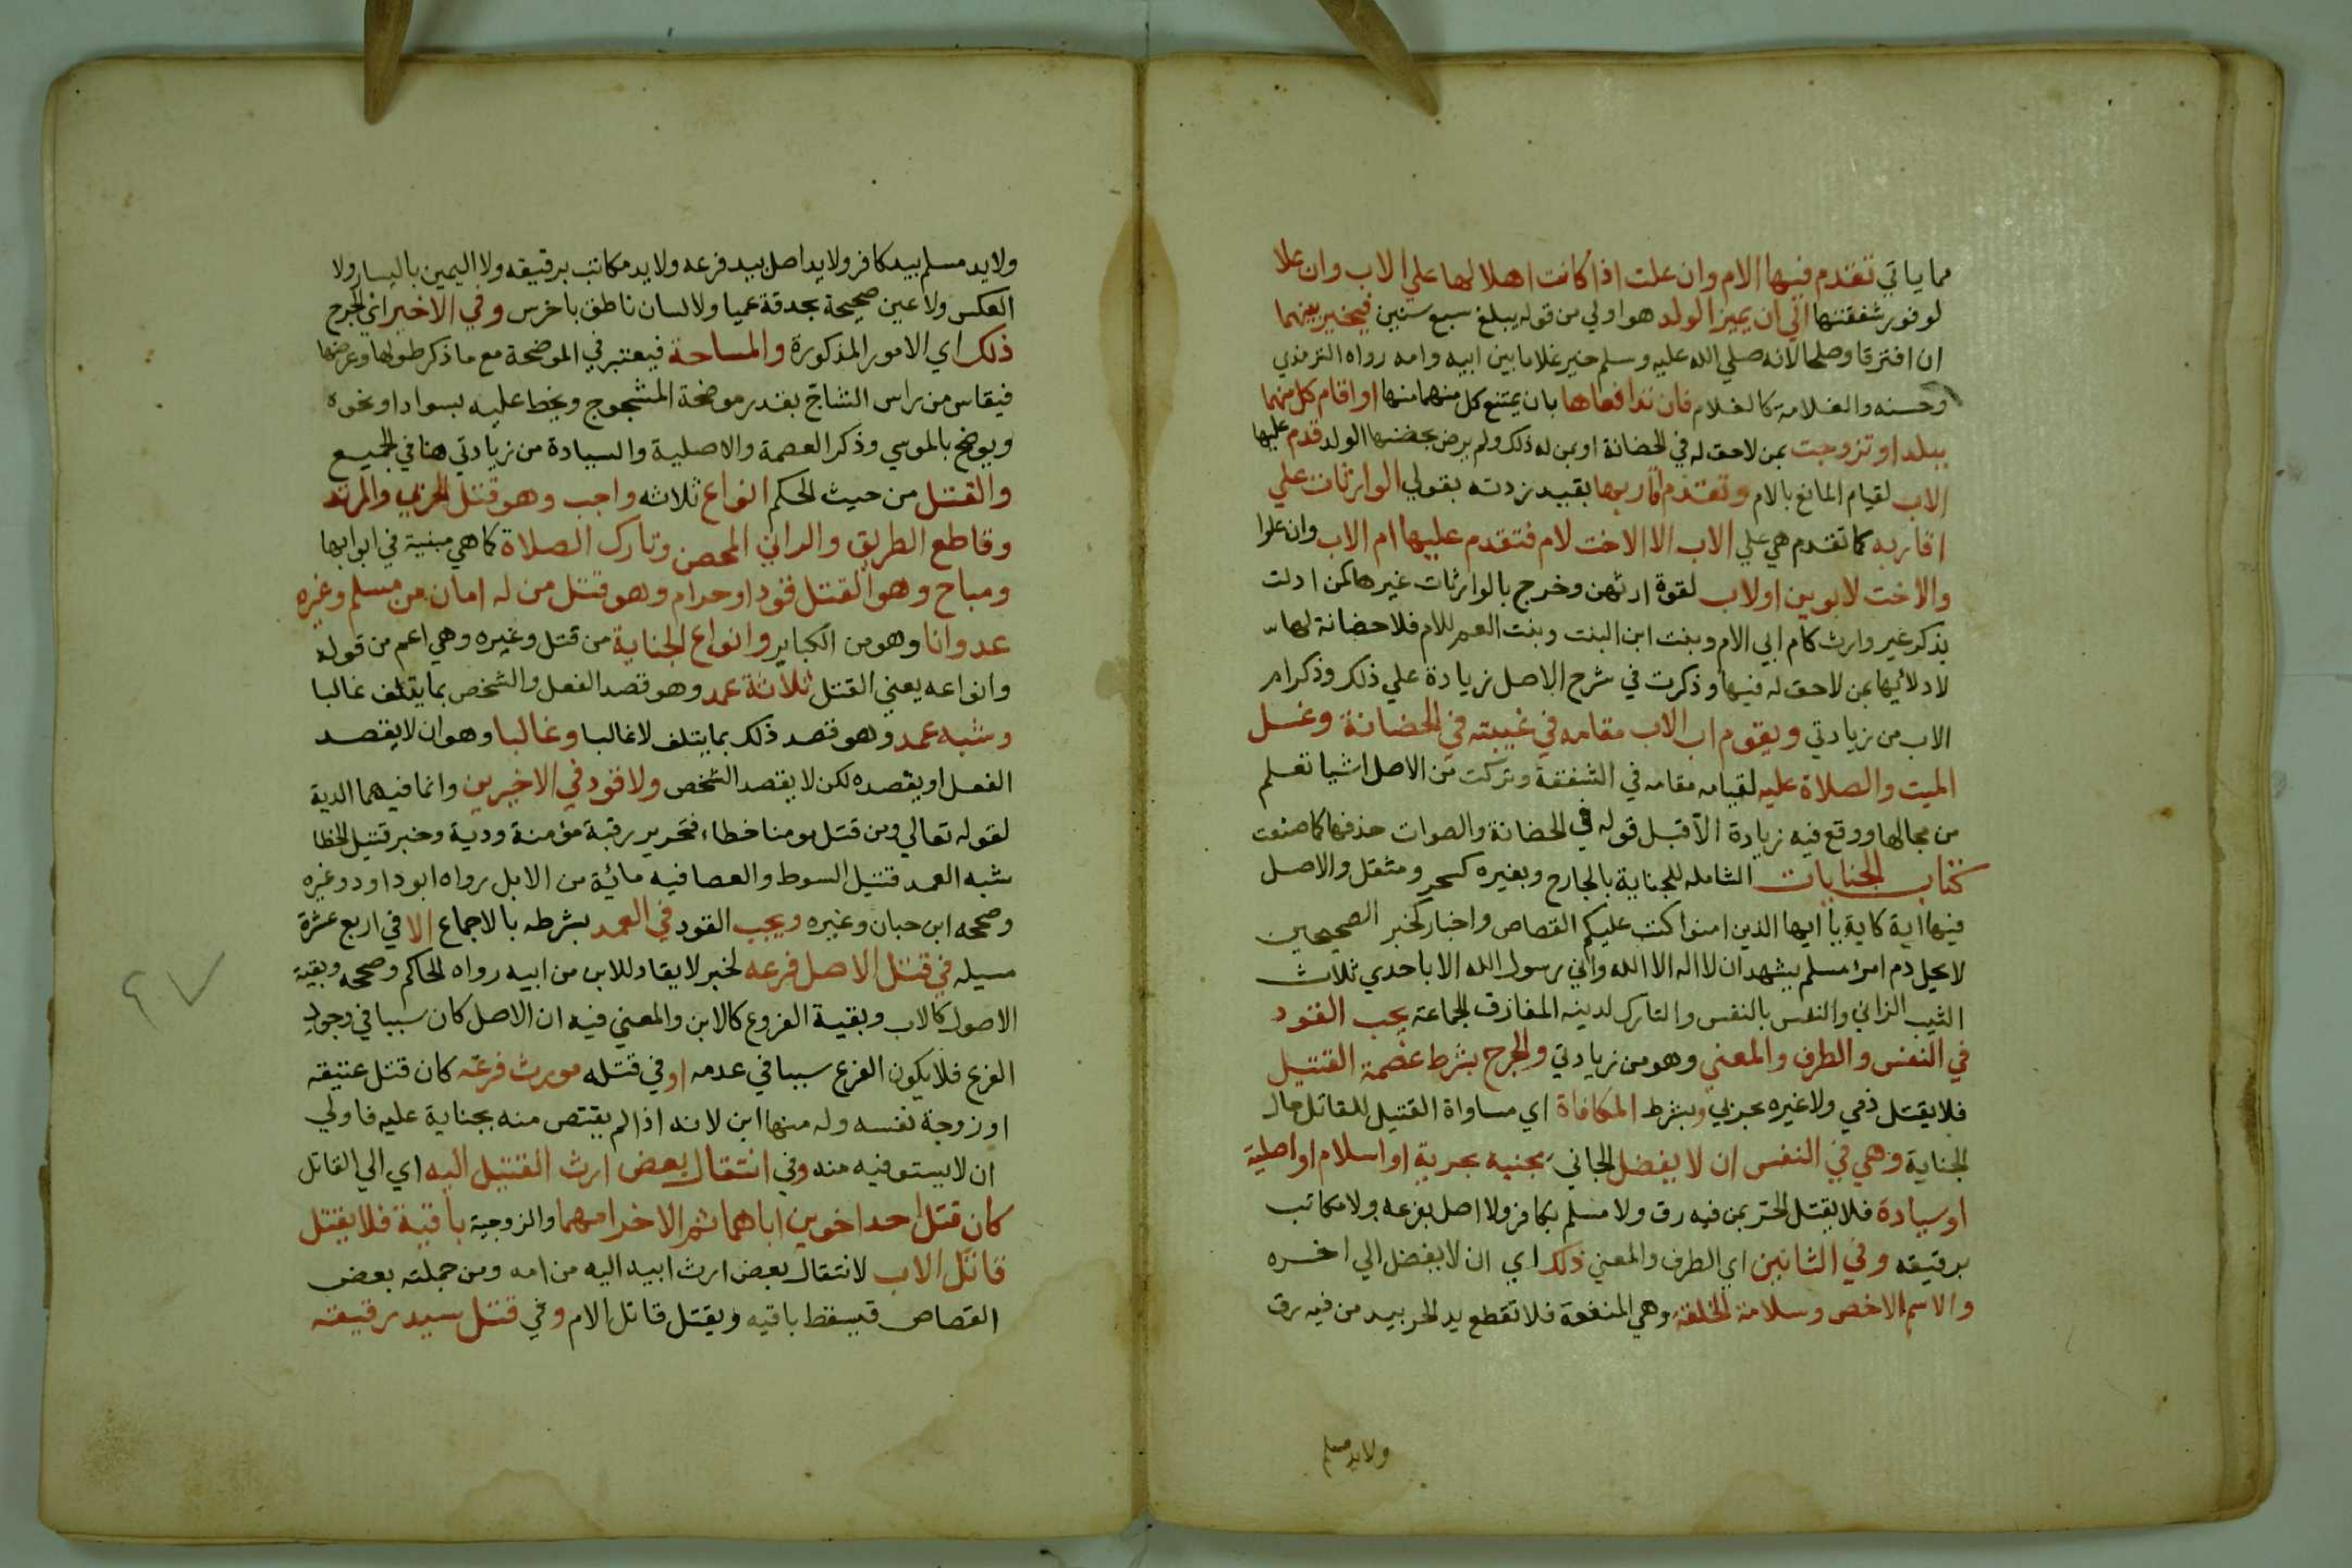 مما ياتي تقدم فيها الام وان علت اذا كانت اهلا لها علي الاب وان علا
لوفور شفقتها الي ان يميز الولد هو اولي من قوله يبلغ سبع سنين فيخير بينهما
ان افترقا وصلحا لانه صلي الله عليه وسلم خير غلاما بين ابيه وامه رواه الترمذي
وحسنه والغلامة كالغلام فان تدافعاها بان يمتنع كل منهما منها او اقام كل منهما
ببلد او تزوجت بمن لاحق له في الحضانة او بمن له ذلك ولم يرض بحضنها الولد قدم عليها
الاب لقيام المانع بالام وتقدم اقاربها بقييد زدته بقولي الوارثات علي
اقاربه كما تقدم هي علي الاب الا الاخت لام فتقدم عليها ام الاب وان علوا
والاخت لابوين او لاب لقوة ارثهن وخرج بالوارثات غيرها كمن ادلت
بذكر غير وارث كام ابي الام وبنت ابن البنت وبنت العم للام فلا حضانة لها
لادلائها بمن لاحق له فيها وذكرت في شرح الاصل زيادة علي ذلك وذكر ام
الاب من زيادتي ويقوم اب الاب مقامه في غيبته في الحضانة وغسل
الميت والصلاة عليه لقيامه مقامه في الشفقة وتركت من الاصل اشيا تعلم
من مجالها ووقع فيه زيادة الا قبل قوله في الحضانة والصواب حذفها كما صنعت
كتاب الجنايات الشاملة للجناية بالجارح وبغيره كسحر ومثقل والاصل
فيها اية كاية يا ايها الذين امنوا كتب عليكم القصاص واخبار كخبر الصحيحين
لا يحل دم امرا مسلم يشهد ان لا اله الا الله واني رسول الله الا باحدي ثلاث
الثيب الزاني والنفس بالنفس والتارك لدينه المفارق للجماعة يجب القود
في النفس والطرف والمعني وهو من زيادتي والجرح بشرط عصمة القتيل
فلا يقتل ذمي ولا غيره بحربي وبشرط المكافاة اي مساواة القتيل للقاتل حال
الجناية وهي في النفس ان لا يفضل الجاني بجنيه بحرية او اسلام او اصلية
او سيادة فلا يقتل الحر بمن فيه رق ولا مسلم بكافر ولا اصل بفرعه ولا مكاتب
برقيقه وفي الثانين اي الطرف والمعني ذلك اي ان لا يفضل الي اخره
والاسم الاخص وسلامة الخلقة وهي المنفعة فلا تقطع يد الحر بيد من فيه رق
ولا يد مسلم
ولا يد مسلم بيد كافر ولا يد اصل بيد فرعه ولا يد مكاتب برقيقه ولا اليمين باليسار ولا
العكس ولا عين صحيحة بحدقة عميا ولا لسان ناطق باخرس وفي الاخير اي الجرح
ذلك اي الامور المذكورة والمساحة فيعتبر في الموضحة مع ما ذكر طولها وعرضها
فيقاس من راس الشاج بقدر موضحة المشجوج ويخط عليه بسواد او نحوه
ويوضح بالموسي وذكر العصمة والاصلية والسيادة من زيادتي هنا في الجميع
والقتل من حيث الحكم انواع ثلاثه واجب وهو قتل الحربي والمرتد
وقاطع الطريق والزاني المحصن وتارك الصلاة كما هي مبنية في ابوابها
ومباح وهو القتل قودا وحرام وهو قتل من له امان من مسلم وغيره
عدوانا وهو من الكباير وانواع الجناية من قتل وغيره وهي اعم من قوله
وانواعه يعني القتل ثلاثة عمد وهو قصد الفعل والشخص بما يتلف غالبا
وشبه عمد وهو قصد ذلك بما يتلف لا غالبا وغالبا وهو ان لا يقصد
الفعل او يقصده لكن لا يقصد الشخص ولا قود في الاخيرين وانما فيهما الدية
لقوله تعالي ومن قتل مومنا خطاء فتحرير رقبة مؤمنة ودية وخبر قتيل الخطا
شبه العمد قتيل السوط والعصا فيه مائة من الابل رواه ابو داود وغيره
وصححه ابن حبان وغيره ويجب القود في العمد بشرطه بالاجماع الا في اربع عشرة
مسيله في قتل الاصل فرعه لخبر لا يقاد للابن من ابيه رواه الحاكم وصححه وبقية
الاصول كالاب وبقية الفروع كالابن والمعني فيه ان الاصل كان سببا في وجود
الفرع فلا يكون الفرع سببا في عدمه او في قتله مورث فرعه كان قتل عتيقه
او زوجة نفسه وله منها ابن لانه اذا لم يقتص منه بجناية عليه فاولي
ان لا يستوفيه منه وفي انتقال بعض ارث القتيل اليه اي الي القاتل
كان قتل احد اخوين اباهما ثم الاخر امهما والزوجية باقية فلا يقتل
قاتل الاب لانتقال بعض ارث ابيه اليه من امه ومن جملته بعض
القصاص فيسقط باقيه ويقتل قاتل الام وفي قتل سيد رقيقه
٢٠٧